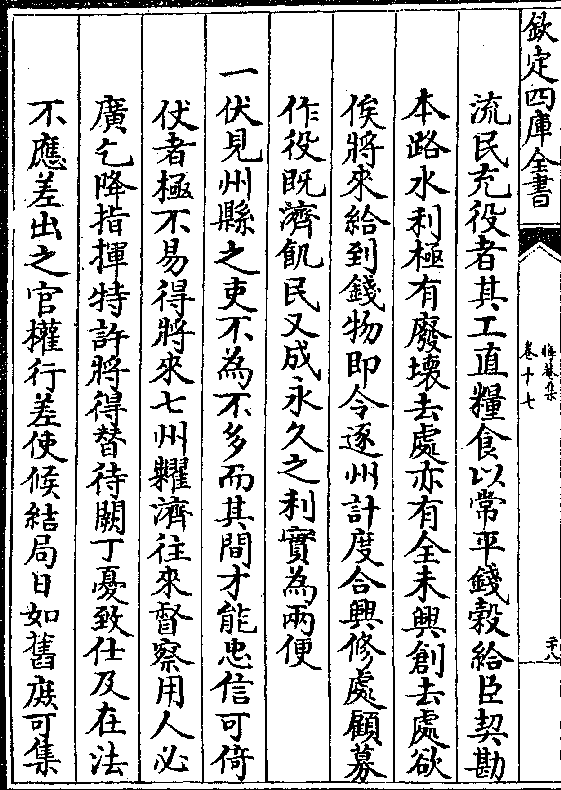 欽定四庫全書
晦菴集
卷十七
二十八
流民充役者其工直糧食以常平錢穀給臣契勘
本路水利極有廢壞去處亦有全未興創去處欲
俟將來給到錢物即令逐州計度合興修處顧募
作役既濟飢民又成永久之利實為兩便
一伏見州縣之吏不為不多而其間才能忠信可倚
仗者極不易得將來七州糶濟往來督察用人必
廣乞降指揮特許將得替待闕丁憂致仕及在法
不應差出之官權行差使候結局日如舊庶可集